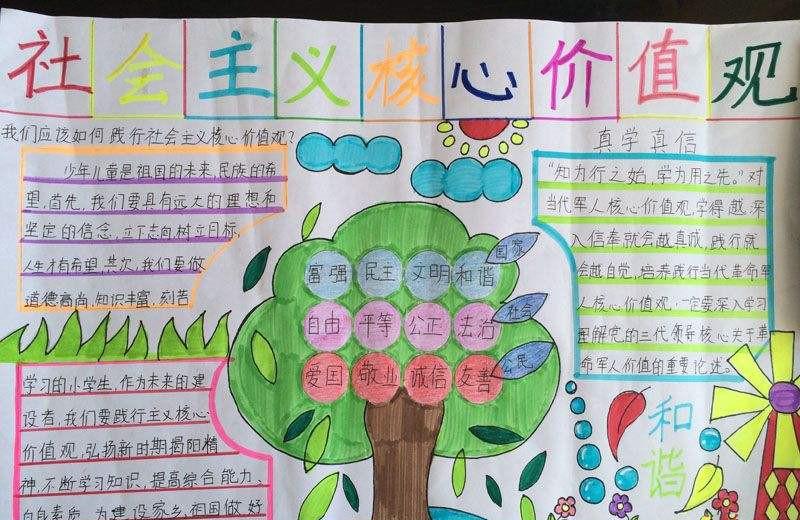 社会主义核心价值观
我们应该如何践行社会主义核心价值观?
少年儿童是祖国的未来,民族的希
望,首先,我们要具有远大的理想和
坚定的信念,立下志向,树立目标,
人生才有希望,其次,我们要做
道德高尚,知识丰富,刻苦
学习的小学生,作为未来的建
设者,我们要践行主义核心
价值观,弘扬新时期揭阳精
神,不断学习知识,提高综合能力、
自身素质,为建设家乡,祖国做好
国家
富强 民主 文明 和谐
社会
自由 平等 公正 法治
公民
爱国 敬业 诚信 友善
真学真信
“知为行之始,学为用之先。”对
当代军人核心价值观,学得越深
入信奉就会越真诚,践行就
会越自觉,培养践行当代革命军
人核心价值观,一定要深入学习
理解党的三代领导核心关于革
命军人价值的重要论述。
和谐